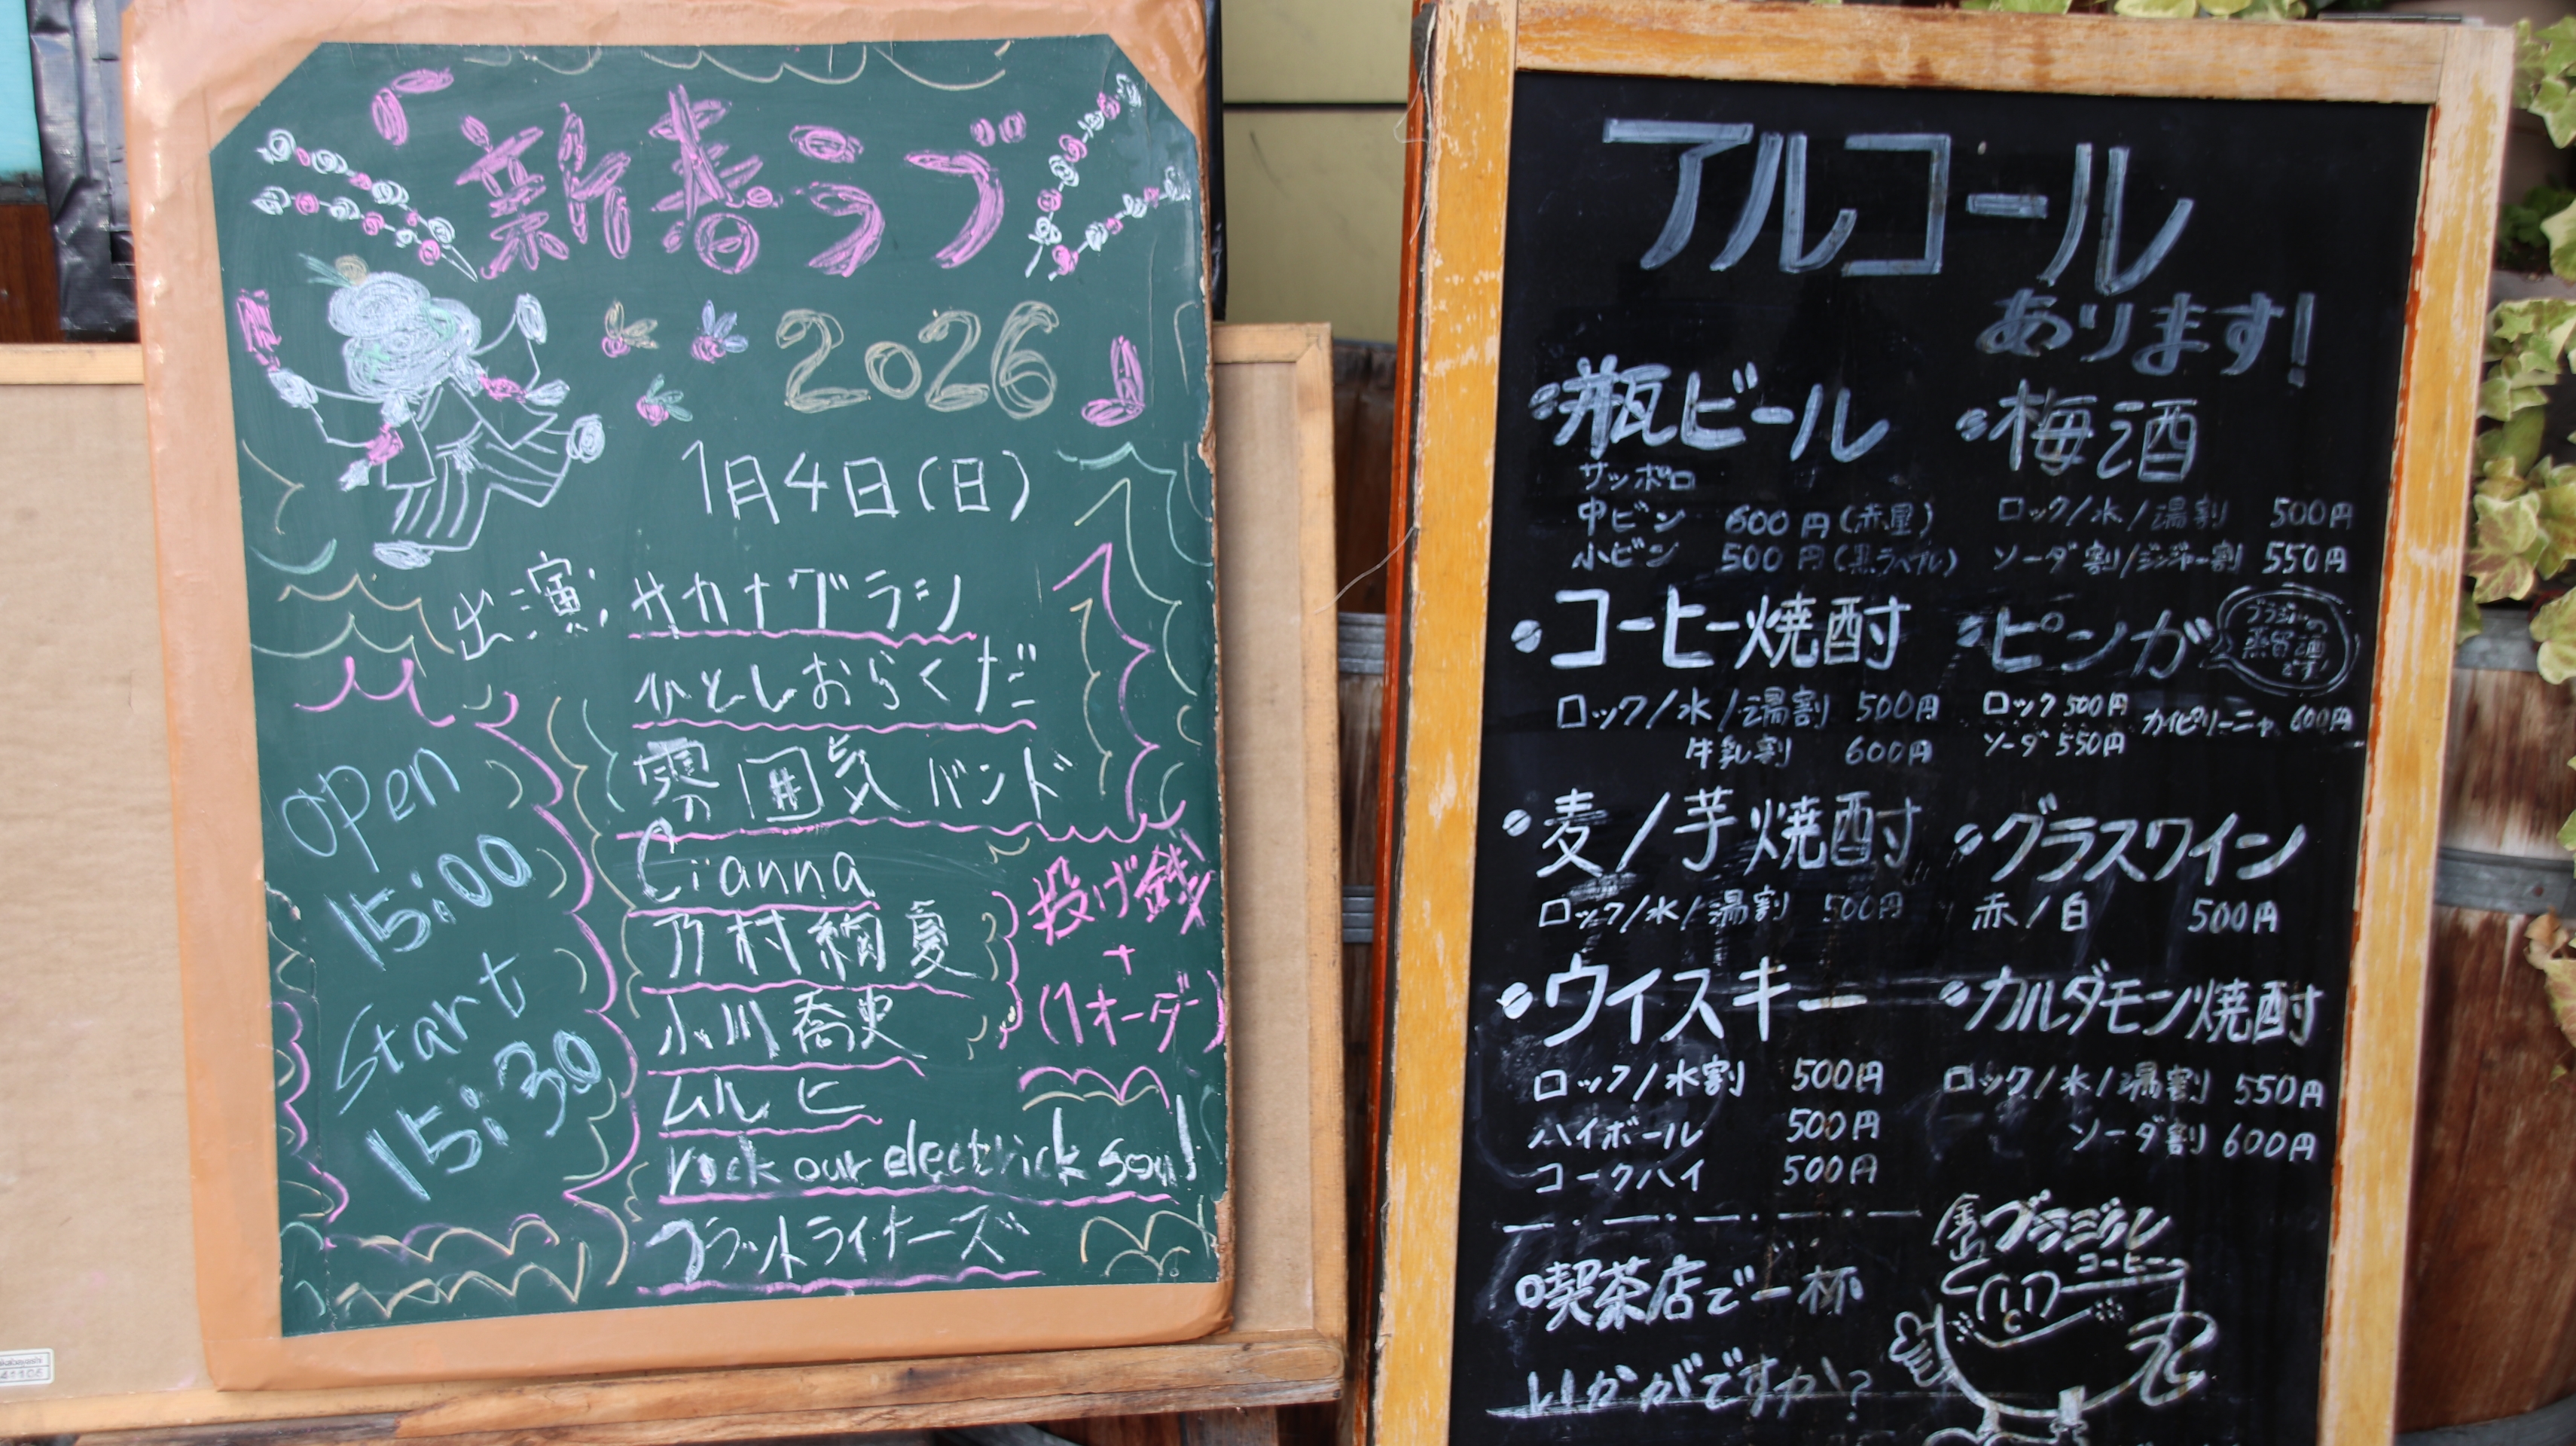 「新春ラブ
2026」
1月4日(日)
出演: サカナグラシ
ひとしおらくだ
雰囲気バンド
Cianna
乃村絢夏
小川喬史
ムルヒ
rock our electrick soul
フラットライナーズ
open
15:00
Start
15:30
投げ銭
+
(1オーダー)
アルコール
あります!
瓶ビール
サッポロ
中ビン 600円(赤星)
小ビン 500円(黒ラベル)
コーヒー焼酎
ロック/水/湯割 500円
牛乳割 600円
麦/芋焼酎
ロック/水/湯割 500円
ウイスキー
ロック/水割 500円
ハイボール 500円
コークハイ 500円
梅酒
ロック/水/湯割 500円
ソーダ割/ジンジャー割 550円
ピンガ
ブラジルの
蒸留酒
です!
ロック 500円
ソーダ 550円
カイピリーニャ 600円
グラスワイン
赤/白 500円
カルダモン焼酎
ロック/水/湯割 550円
ソーダ割 600円
喫茶店で一杯
いかがですか?
ブラジル
コーヒー